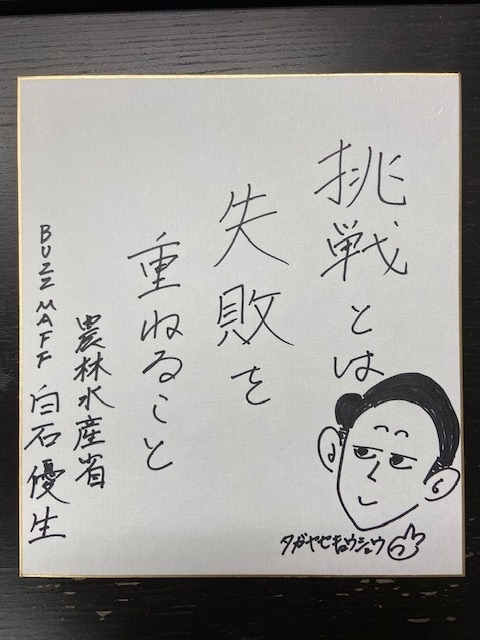 挑戦とは
失敗を
重ねること
農林水産省
BUZZ MAFF 白石優生
タガヤセキュウシュウ